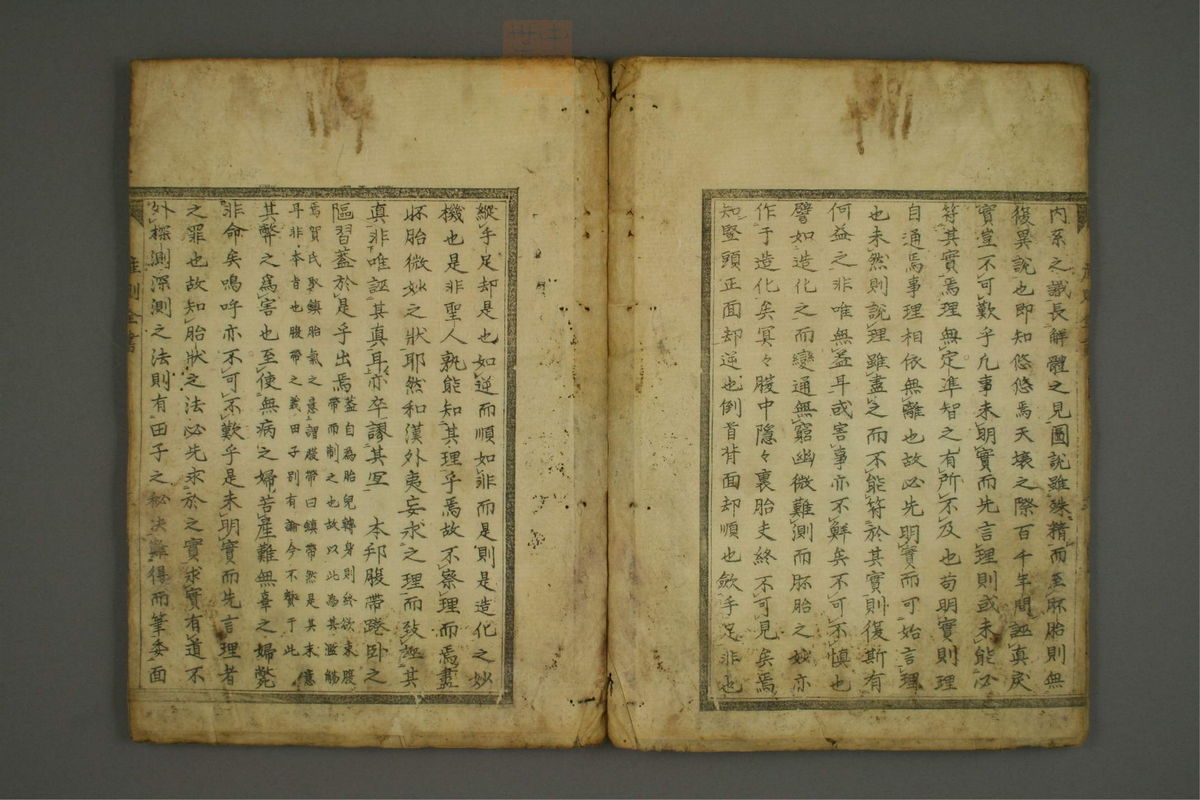 内系之識長解體之見圖說雖殊精而至胚胎則無
復異說也即知悠悠焉天壤之際百千年間誣真戾
實豈不可歎乎凡事未明實而先言理則或未能必
符其實焉理無定準智之有所不及也苟明實則理
自通焉事理相依無離也故必先明實而可始言理
也未然則說理雖盡之而不能符於其實則復斯有
何益之非唯無益耳或害事亦不鮮矣不可不慎也
譬如造化之而變通無窮幽微難測而胚胎之妙亦
作于造化矣冥々腹中隱々裏胎史終不可見矣焉
知竪頭正面却逆也倒首背面却順也歛手足非也
縱手足却是也如逆而順如非而是則是造化之妙
機也是非聖人孰能知其理乎焉故不察理而焉盡
胚胎微妙之狀耶然和漢外夷妄求之理而致誣其
真非唯誣其真耳亦卒謬其 本邦腹帶踡臥之
隔習蓋於是乎出焉蓋自為胎兒轉身則終欲束腹帶而制之也故以此為其濫觴
焉賀氏取鎮胎氣之意謂腹帶曰鎮帶然是其末意耳非本旨也腹帶之義田子別有論今不贅于此
其弊之爲害也至使無病之婦苦產難無辜之婦斃
非命矣嗚呼亦不可不歎乎是未明實而先言理者
之罪也故知胎狀之法必先求於之實求實有道不
外探測深測之法則有田子之秘决難得而筆委面